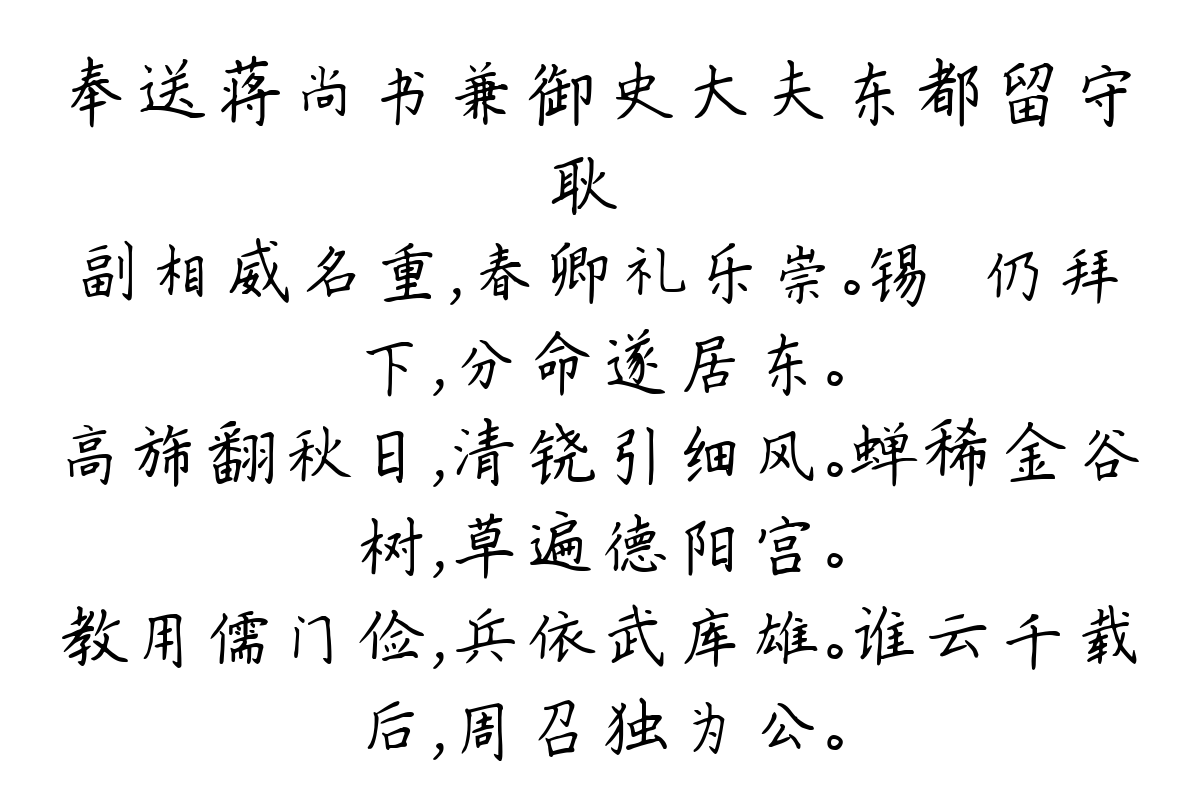 奉送蒋尚书兼御史大夫东都留守
耿
副相威名重,春卿礼乐崇。锡 仍拜
下,分命遂居东。
高旆翻秋日,清铙引细风。蝉稀金谷
树,草遍德阳宫。
教用儒门俭,兵依武库雄。谁云千载
后,周召独为公。